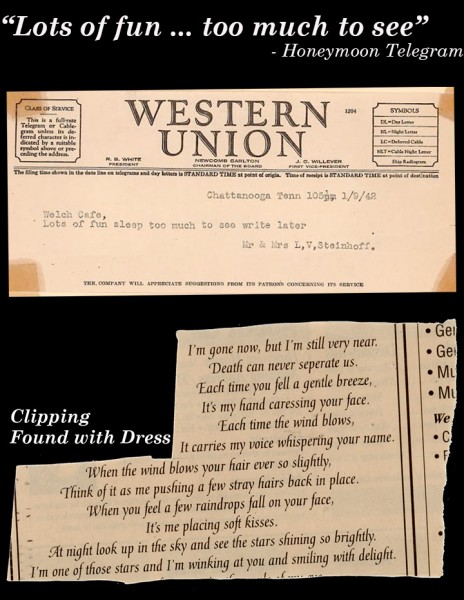 “Lots of fun ... too much to see”
- Honeymoon Telegram
CLASS OF SERVICE
This is a full-rate
Telegram or Cable-
gram unless its de-
ferred character is in-
dicated by a suitable
symbol above or pre-
ceding the address.
WESTERN
UNION
1204
SYMBOLS
DL=Day Letter
NL=Night Letter
LC=Deferred Cable
NLT=Cable Night Letter
Ship Radiogram
R. B. WHITE
PRESIDENT
NEWCOMB CARLTON
CHAIRMAN OF THE BOARD
J. C. WILLEVER
FIRST VICE-PRESIDENT
The filing time shown in the date line on telegrams and day letters is STANDARD TIME at point of origin. Time of receipt is STANDARD TIME at point of destination
Chattanooga Tenn 105pm 1/9/42
Welch Cafe,
Lots of fun sleep too much to see write later
Mr & Mrs L,V,Steinhoff.
THE COMPANY WILL APPRECIATE SUGGESTIONS FROM ITS PATRONS CONCERNING ITS SERVICE
Clipping
Found with Dress
I'm gone now, but I'm still very near.
Death can never seperate us.
Each time you fell a gentle breeze,
It's my hand caressing your face.
Each time the wind blows,
It carries my voice whispering your name.
When the wind blows your hair ever so slightly,
Think of it as me pushing a few stray hairs back in place.
When you feel a few raindrops fall on your face,
It's me placing soft kisses.
At night look up in the sky and see the stars shining so brightly.
I'm one of those stars and I'm winking at you and smiling with delight.
• Ge
• Ge
• Mu
• Mu
We
• C